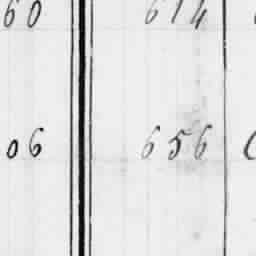 60 614
06 656